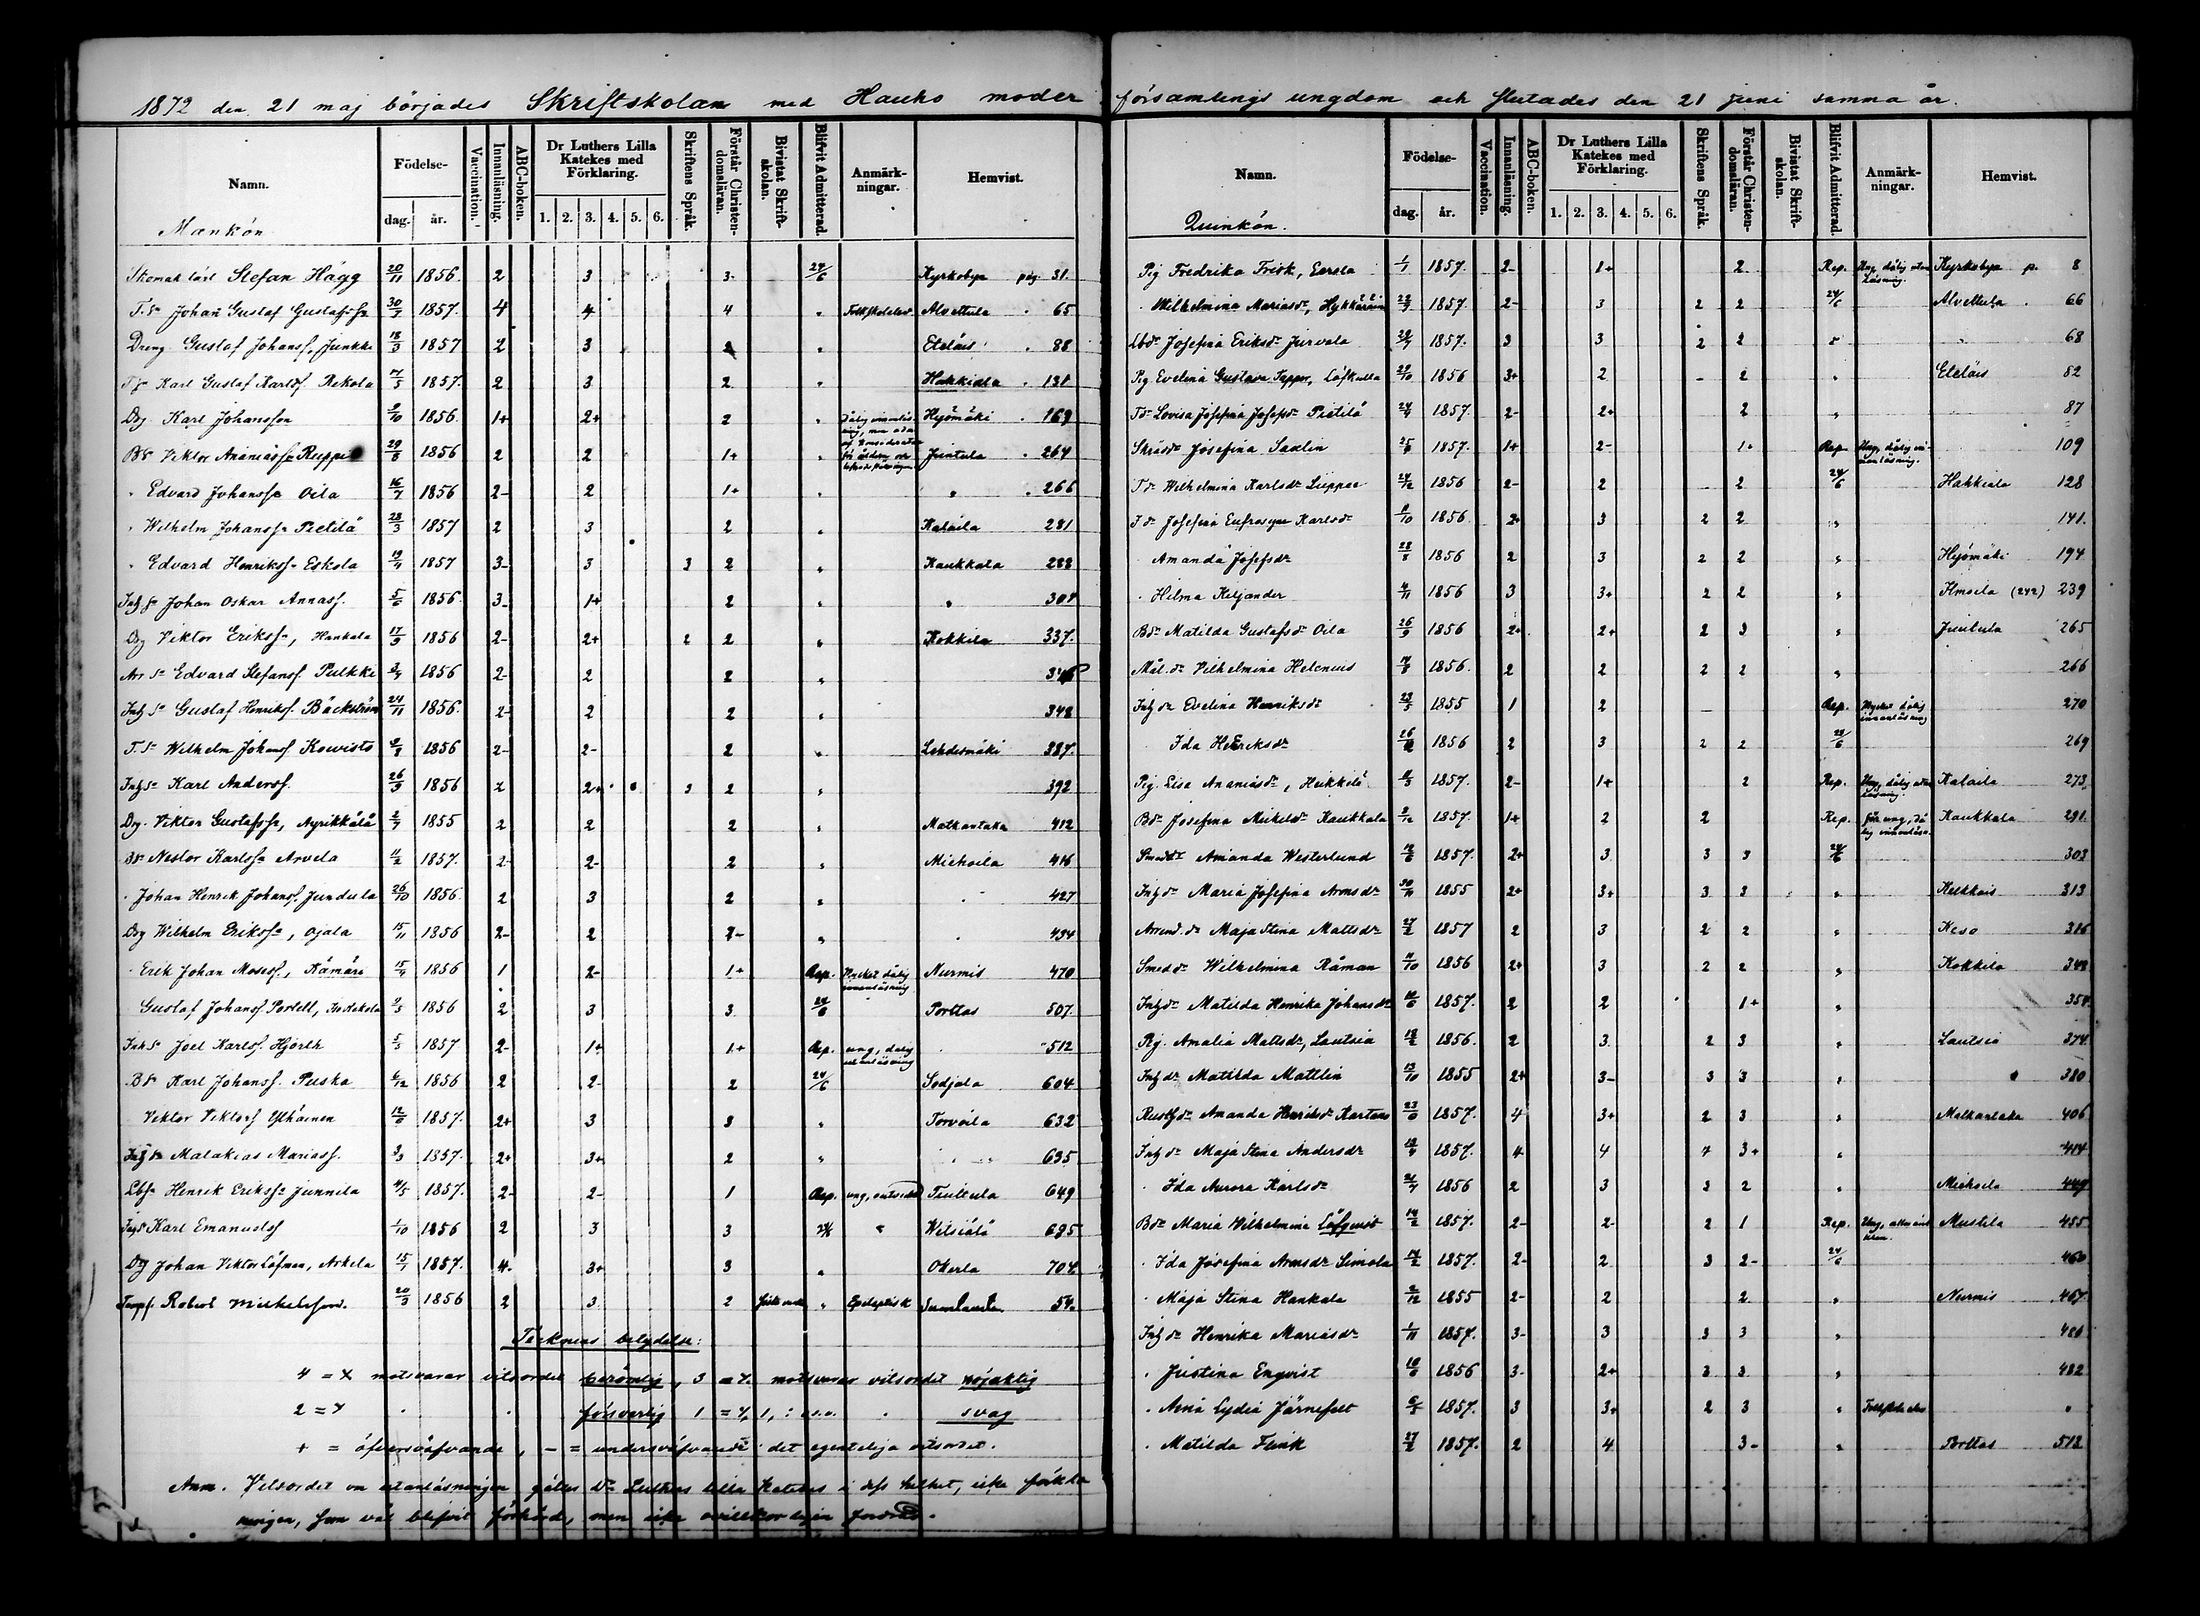 1872 den 21 maj börjades Skriftskolan med Hauho moder församlings ungdom och slutades den 21 juni samma år.
Namn. Födelse- dag. år. Vaccination. Innanläsning. ABC-boken. Dr Luthers Lilla Katekes med Förklaring. 1. 2. 3. 4. 5. 6. Skriftens Språk. Förstår Christendomsläran. Bivistat Skriftskolan. Blifvit Admitterad. Anmärkningar. Hemvist.
Mankön
Stefan Hägg 20/11 1856. 2 3 3 24/6 Kyrkobyn pag 31.
T.sn Johan Gustaf Gustafssn 30/7 1857. 4 4 4 " Folkskoleelev Alvettula " 65
Dreng Gustaf Johanss. Junkka 18/3 1857 2 3 2 " Eteläis " 88
T.sn Karl Gustaf Karlss. Rekola 1857. 2 3 2 " Hakkiala " 131
Drg Karl Johansson 9/10 1856. 1+ 2+ 2 " Hyömäki " 169
Bsn Viktor Ananiassn Ruppi 29/8 1856 2 2 1+ " Juntula " 264
" Edvard Johanssn Oila 16/7 1856 2- 2 1+ " " " 266
" Wilhelm Johanssn Pietilä 28/3 1857 2 3 2 " Kalaila 281
" Edvard Henrikssn Eskola 19/4 1857 3- 3 3 2 " Kaukkala 288
Inhsn Johan Oskar Annass. 5/6 1856. 3- 1+ 2 " " 304
Drg Viktor Erikssn, Hankala 17/9 1856 2- 2+ 2 2 " Kokkila 337.
Arr sn Edvard Stefanss. Pulkki 1856 2- 2 2 " 346
Inhsn Gustaf Henrikss. Bäckström 24/11 1856. 2- 2 2 " 348
T.sn Wilhelm Johanss Kowisto 1856 2- 2- 2 " Lehdesmäki 387.
Inhsn Karl Anderss. 26/9 1856 2 2+ 3 2 " 392
Drg. Viktor Gustafssn, Ayrikkälä 2/7 1855 2 2 2 " Matkantaka 412
Bsn Nestor Karlssn Arvela 11/2 1857. 2- 2- 2 " Miehoila 416
" Johan Henrik Johanss. Jundula 26/10 1856. 2 3 2 " " 427
Drg Wilhelm Erikssn, Ojala 15/11 1856 2- 2 2- " " 434
" Erik Johan Mosess., Kämäri 15/9 1856 1 2- 1+ Rep. Mycket dålig innanläsning Nurmis 470
Gustaf Johanss. Portell 1856 2 3 3 24/6 Porttas 507.
Inhsn Joel Karlss. Hjorth 1857 2- 1+ 1+ Rep. ung, dålig utanläsning " 512
Bsn Karl Johanss. Puska 6/12 1856 2 2- 2 24/6 Sodjala 604
Viktor Viktorss Ylhäinen 12/6 1857. 2+ 3 3 " Torvoila 632
Inhsn Malakias Mariass. 3/3 1857. 2+ 3+ 2 " " 635
Lbsn Henrik Erikssn Junnila 4/5 1857. 2- 2- 1 Rep. ung, Tuittula 649
Inhsn Karl Emanuelss 1/10 1856 2 3 3 24/6 Witsiälä 695
Drg Johan Viktor Löfman, Arkela 15/1 1857. 4- 3+ 3 " Okerla 704
Robert Mickelsson. 20/3 1856 2 3 2 " Epileptisk 54.
Tecknens betydelse:
4 = motsvarar vitsordet berömlig, 3 = motsvarar vitsordet nöjaktig
2 = " " försvarlig 1 = " svag
+ = öfversväfvande, - = undersväfvande det egentliga vitsordet.
Anm. Vitsordet om utanläsningen gäller Dr Luthers lilla Kateches i dess helhet, icke förklaringen, som väl blifvit förhörd, men icke ovillkorligen fordrad.
Namn. Födelse- dag. år. Vaccination. Innanläsning. ABC-boken. Dr Luthers Lilla Katekes med Förklaring. 1. 2. 3. 4. 5. 6. Skriftens Språk. Förstår Christendomsläran. Bivistat Skriftskolan. Blifvit Admitterad. Anmärkningar. Hemvist.
Quinkön.
Pig Fredrika Frisk, Eerola 1/1 1857. 2- 1+ 2 Rep. Ung, dålig utanläsning. Kyrkobyn p. 8
" Wilhelmina Mariasdr, 1857 2- 3 2 2 24/6 Alvettula " 66
Lbdr Josefina Eriksdr Jurvala 1857. 3 3 2 2 " " 68
Pig Evelina Gustava Tapper, Löfkulla 29/10 1856 3+ 2 - 2 " Eteläis 82
Tdr Lovisa Josefina Josefsdr Pietilä 24/9 1857. 2- 2+ 2 " 87
Skrdr Josefina Saxlin 1857. 1+ 2- 1+ Rep. Ung, dålig innanläsning. 109
Tdr Wilhelmina Karlsdr Lieppee 24/12 1856 2- 2 - 2 24/6 Hakkiala 128
Tdr Josefina Eufrosyne Karlsdr 1856. 2+ 3 2 2 " 141.
Amanda Josefsdr 1856 2 3 2 2 " Hyömäki 194
" Hilma Keljander 4/11 1856 3 3+ 2 2 " Ilmoila (242) 239
Bdr Matilda Gustafsdr Oila 26/9 1856 2+ 2+ 2 3 " Juntula 265
Mål.dr Vilhelmina Helenius 1856. 2 2 2 2 " 266
Inhdr Evelina Henriksdr 23/5 1855 1 2 - Rep. Mycket dålig innanläsning 270
Ida Henriksdr 1856 2 3 2 2 24/6 269
Pig. Lisa Ananiasdr, Heikkilä 1857. 2- 1+ 2 Rep. Ung, dålig utanläsning. Kalaila 273.
Bdr Josefina Mickelsdr Kaukkala 2/12 1857. 1+ 2 2 Rep. för ung, dålig innanläsn. Kaukkala 291.
Smeddr Amanda Westerlund 1857. 2+ 3 3 3 24/6 303
Inhdr Maria Josefina Armsdr 1855 2+ 3+ 3 3 " Kelkkais 313
Arrend.dr Maja Stina Mattsdr 27/2 1857 2 3 2 2 " Keso 316
Smeddr Wilhelmina Råman 4/10 1856 2+ 3 2 2 " Kokkila 348
Inhdr Matilda Henrika Johansdr 1857. 2 2 1+ " 354
Pig. Amalia Mattsdr, Lautsia 1856. 2 3 2 3 " Lautsia 374
Inhdr Matilda Mattlin 13/10 1855 2+ 3- 3 3 " " 380
Rusthdr Amanda Henriksdr Kartano 23/6 1857. 4 3+ 2 3 " Matkantaka 406
Inhdr Maja Stina Andersdr 1857. 4 4 4 3+ " 414
" Ida Aurora Karlsdr 1856 2 3 3 2 " Miehoila 449
Bdr Maria Wilhelmina Löfqvist 14/2 1857. 2- 2- 2 1 Rep. Mustila 455
" Ida Josefina Armsdr Simola 14/2 1857. 2- 2 3 2- 24/6 460
" Maja Stina Hankala 2/12 1855 2- 2 2 " Nurmis 467
Inhdr Henrika Mariasdr 1/11 1857. 3- 3 3 3 " 486
" Justina Enqvist 1856 3- 2+ 3 3 " 482
" Anna Lydia Järnefelt 1857. 3 3+ 2 3 " "
" Matilda Flink 27/2 1857. 2 4 3- " Porttas 512